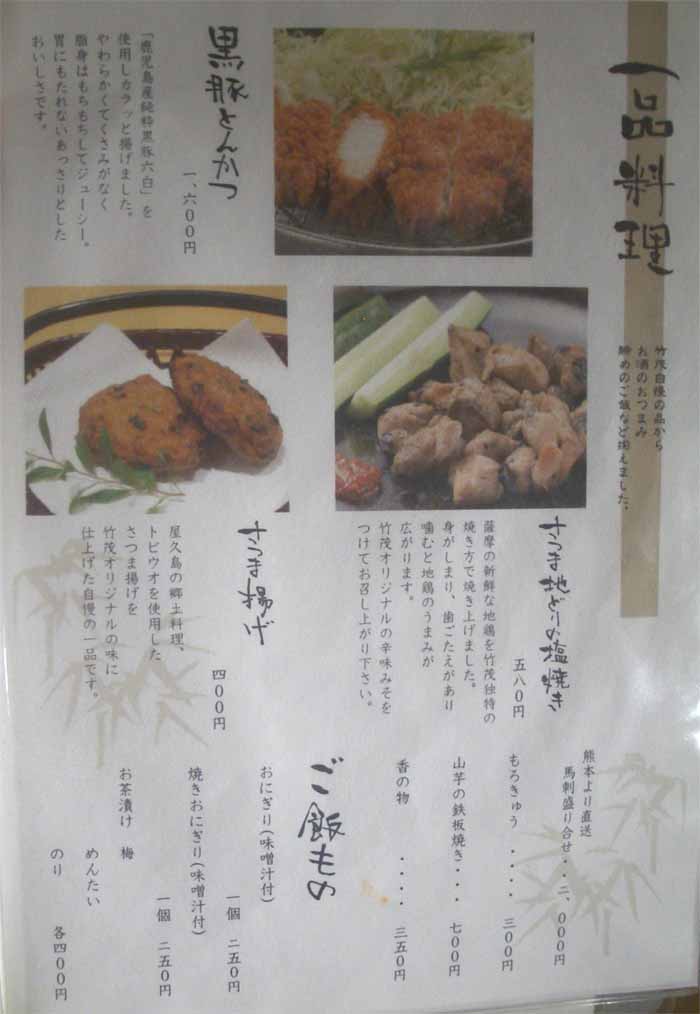 一品料理
竹茂自慢の品から
お酒のおつまみ
締めのご飯など揃えました。
黒豚とんかつ
一、六００円
「鹿児島産純粋黒豚六白」を
使用しカラッと揚げました。
やわらかくてくさみがなく
脂身はもちもちしてジューシー。
胃にもたれないあっさりとした
おいしさです。
さつま地どりの塩焼き
五八０円
薩摩の新鮮な地鶏を竹茂独特の
焼き方で焼き上げました。
身がしまり、歯ごたえがあり
噛むと地鶏のうまみが
広がります。
竹茂オリジナルの辛味みそを
つけてお召し上がり下さい。
さつま揚げ
四００円
屋久島の郷土料理、
トビウオを使用した
さつま揚げを
竹茂オリジナルの味に
仕上げた自慢の一品です。
熊本より直送
馬刺盛り合せ・・二、０００円
もろきゅう ・・・・ 三００円
山芋の鉄板焼き・・・ 七００円
香の物 ・・・・ 三五０円
ご飯もの
おにぎり(味噌汁付)
一個 二五０円
焼きおにぎり(味噌汁付)
一個 二五０円
お茶漬け 梅
めんたい
のり 各四００円